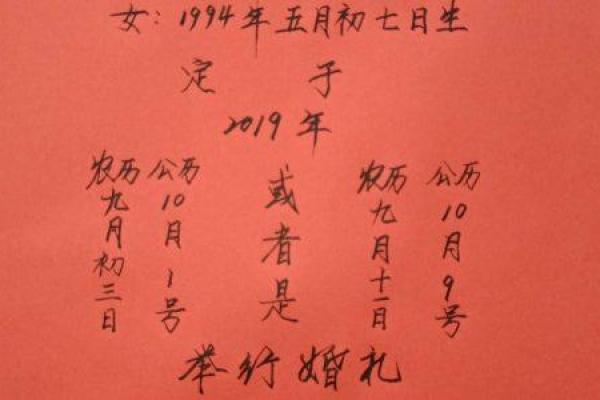 女：1994年五月初七日生
定 于
2019年
农历九月初三日
公历10月1号
或者是
农历九月十一日
公历10月9号
举行婚礼